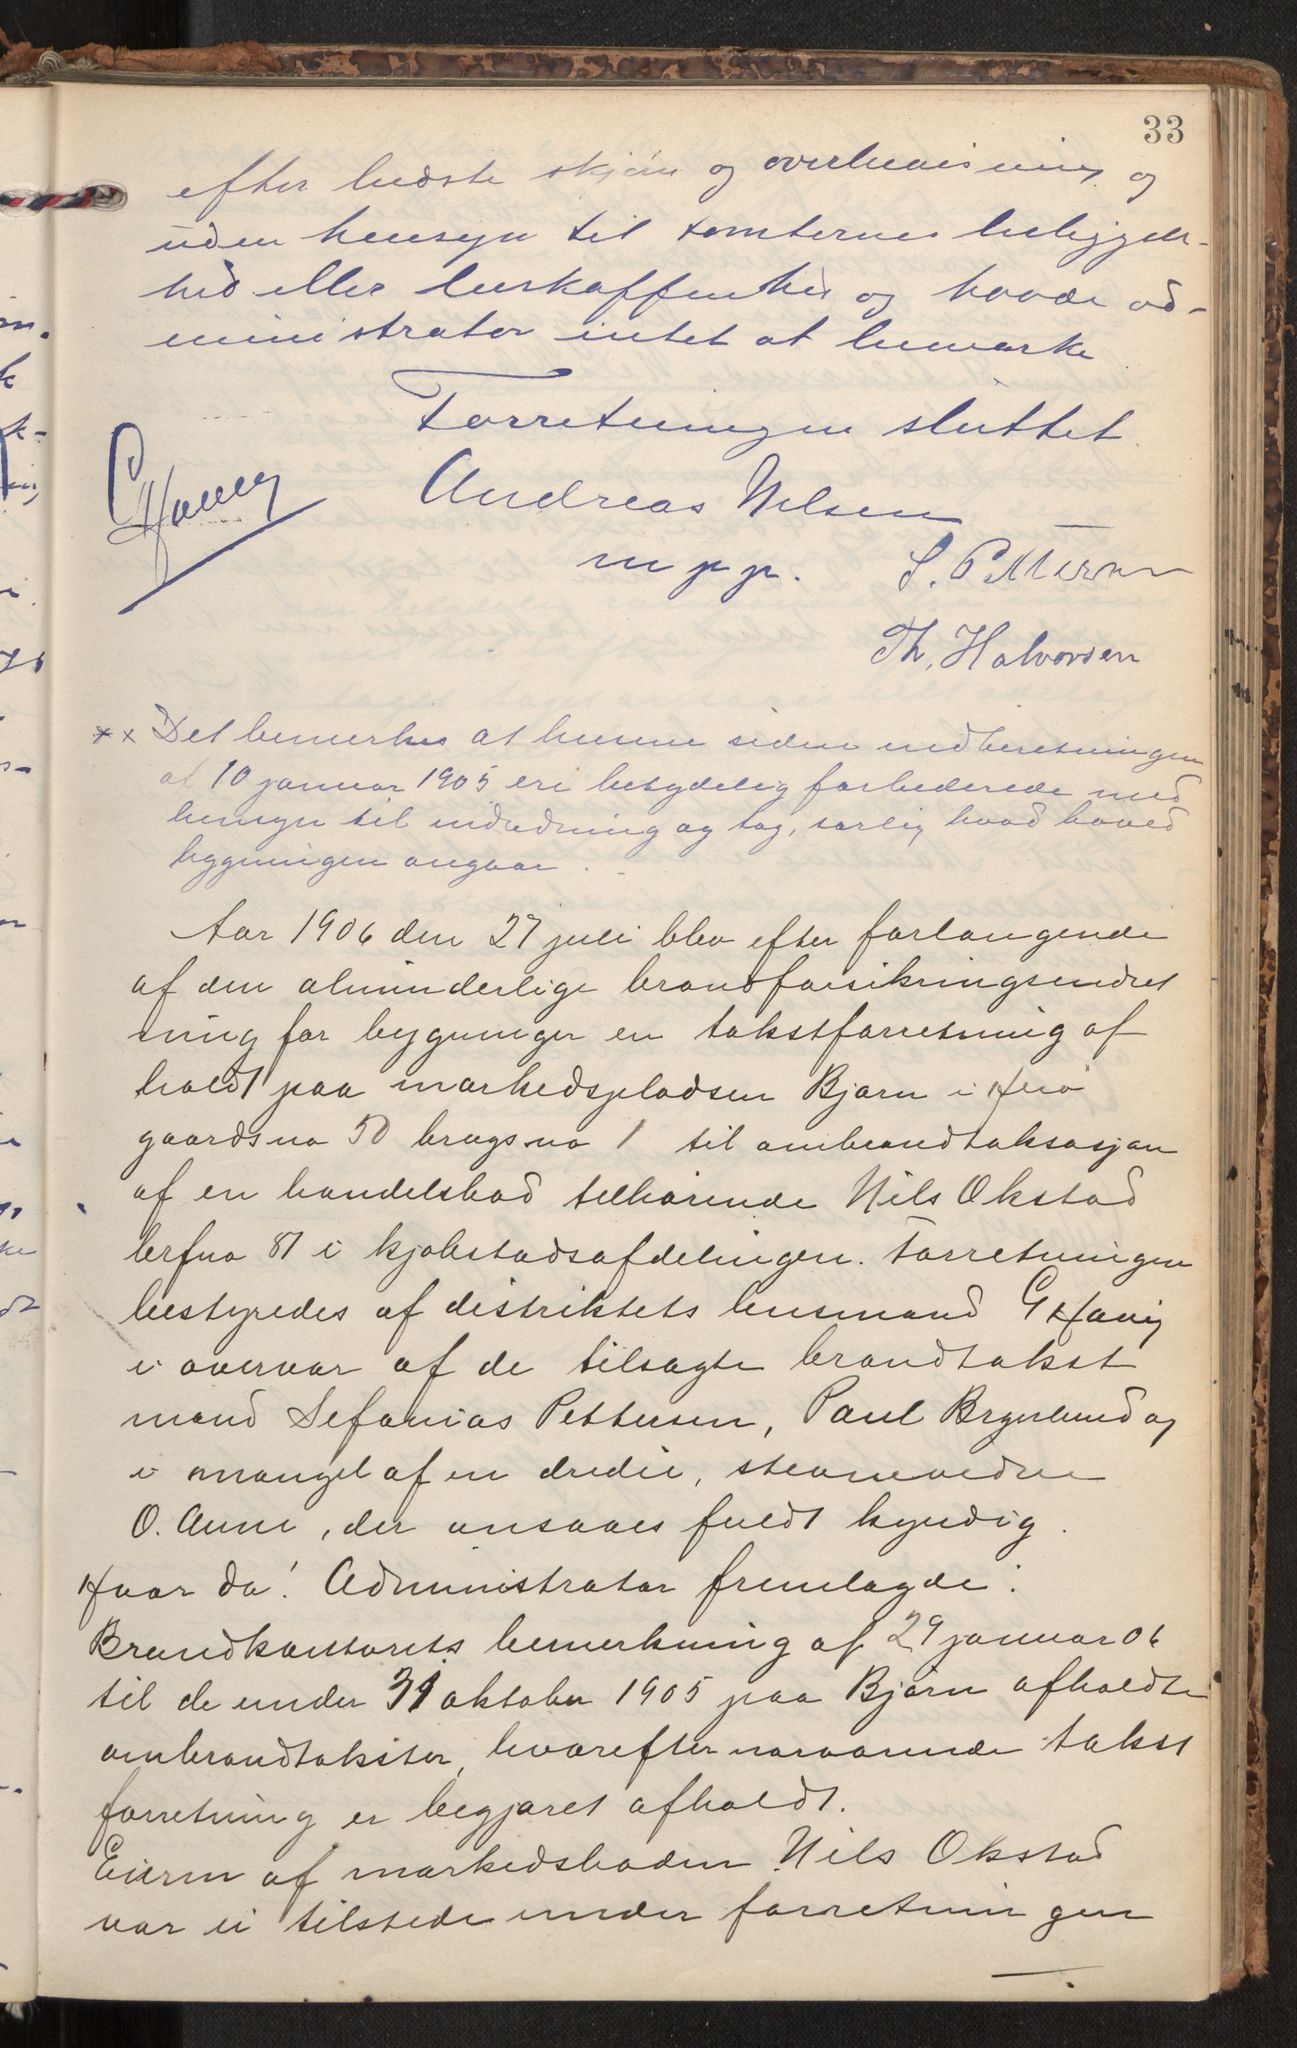 33
efter bedste skjøn og overbevisning og
uden hensyn til tomternes beliggen-
hed eller beskaffenhed og havde ad-
ministrator intet at bemærke
Forretningen sluttet
GHavig
Andreas Nilsen
m p p.
S. Pettersen
Th. Halvorsen
x x Det bemerkes at husene siden indberetningen
af 10 januar 1905 ere betydelig forbedrede med
hensyn til indredning og tag, særlig hvad hoved
bygningen angaar.
Aar 1906 den 27 juli blev efter forlangende
af den almindelige brandforsikringsindret
ning for bygninger en takstforretning af
holdt paa markedspladsen Bjørn i Herø
gaardsno 50 brugsno 1 til ombrandtaksasjon
af en handelsbod tilhørende Nils Okstad
brfno 87 i kjøbstadsafdelingen. Forretningen
bestyredes af distriktets lensmand GHavig
i overvær af de tilsagte brandtakst
mænd Sefanias Pettersen, Paul Brynlund og
i mangel af en tredie, stevnevidne
O. Aune, der ansaaes fuldt kyndig.
Hvor da! Administrator fremlagde:
Brandkontorets bemerkning af 29 januar 06
til de under 31 oktober 1905 paa Bjørn afholdte
ombrandtakster, hvorefter nærværende takst
forretning er begjæret afholdt.
Eieren af markedsboden Nils Okstad
var ei tilstede under forretningen